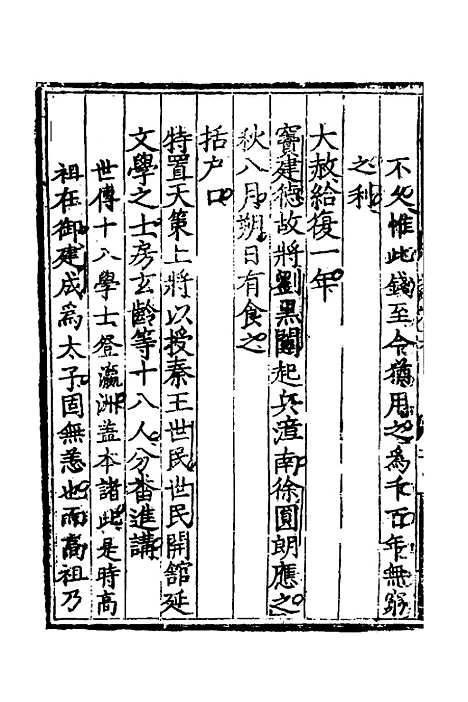 不久惟此錢至今猶用之為千百年無窮
之利
大赦給復一年
竇建德故將劉黑闥起兵漳南徐圓朗應之
秋八月朔日有食之
括戶口
特置天策上將以授秦王世民世民開館延
文學之士房玄齡等十八人分番進講
世傳十八學士登瀛洲蓋本諸此是時高
祖在御建成為太子固無恙也而高祖乃